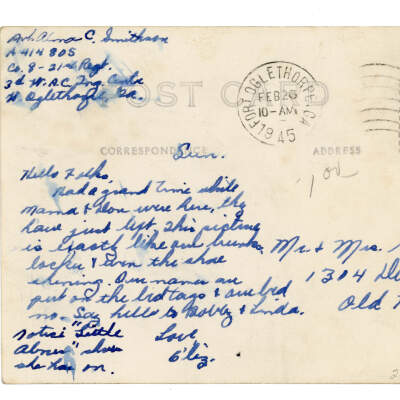 Pvt. Alma C. Smithson
A 414805
Co. 8 - 21st Regt.
3d W.A.C Tng. Centr
Ft Oglethorpe, Ga.
POST CARD
FORT OGLETHORPE, GA.
FEB 26
10-AM
1945
CORRESPONDENCE
ADDRESS
Sun.
Hello Folks,
Had a grand time while
Mama & Don were here, they
have just left. This picture
is exactly like our bunks
locker & even the shoe
shining. Our names are
put on the bed tags & our bed
no. Say hello to Bobby & Linda.
notice "Little
Abner" shoes
she has on.
Love,
Mr & Mrs.
1304
Old